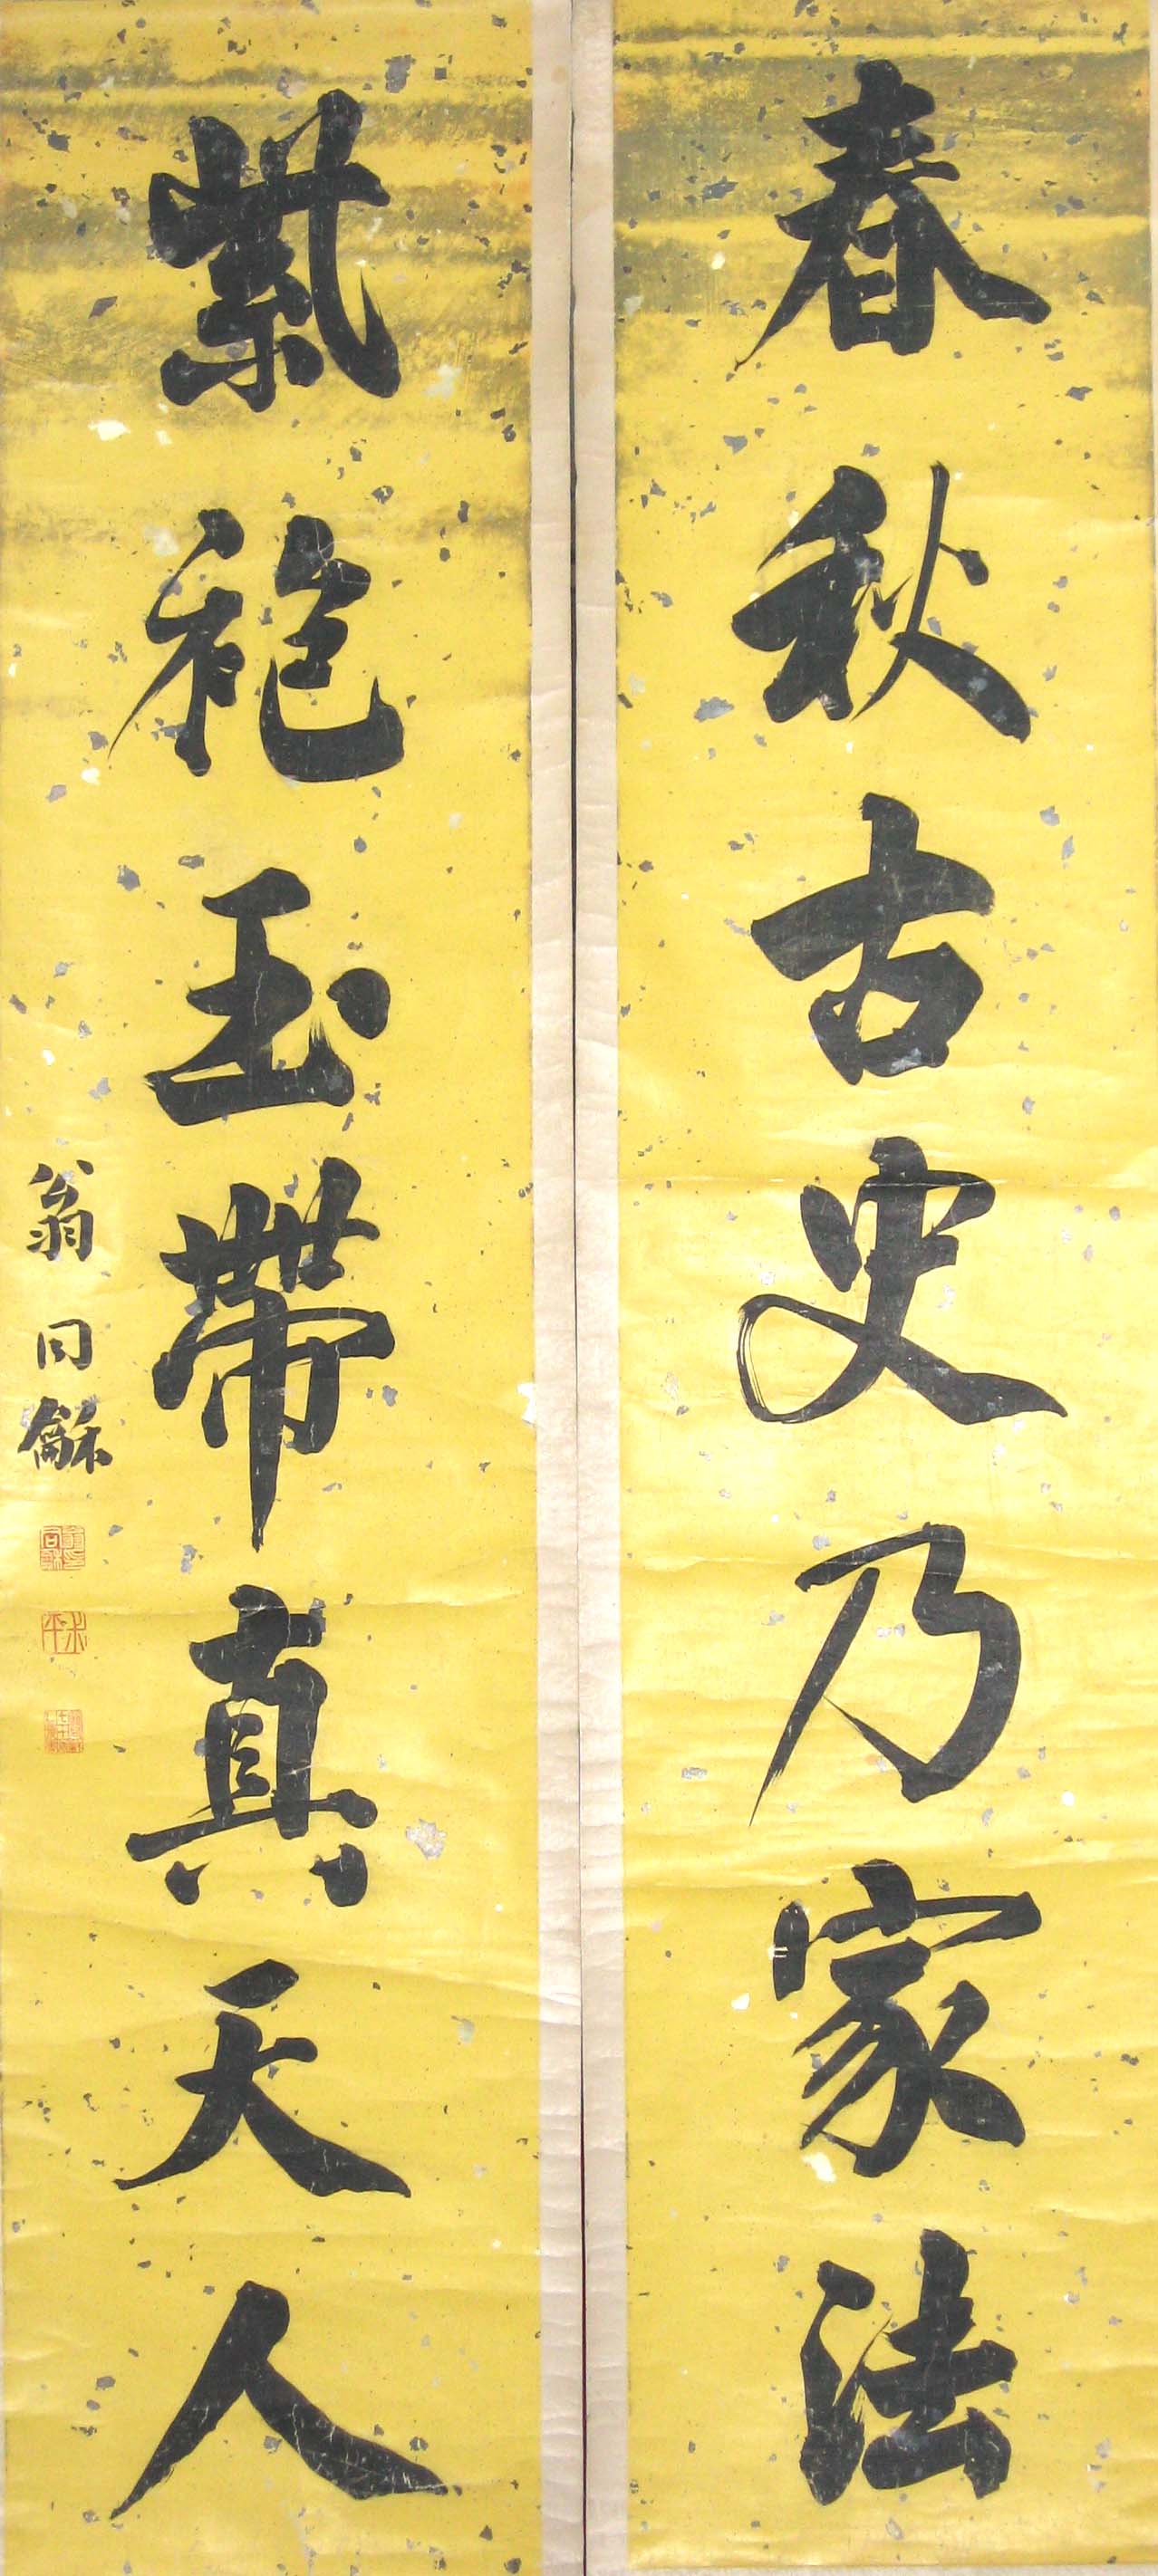 春秋古史乃家法
紫袍玉帶真天人
翁同龢